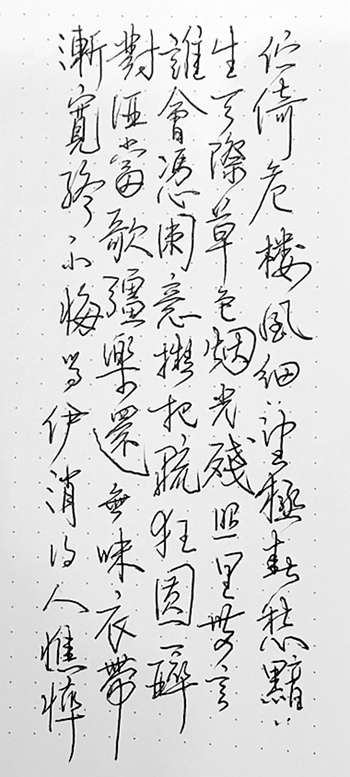 伫倚危楼風細〻望極春愁黯〻
生天際草色烟光殘照里無言
誰會憑闌意擬把疏狂圖一醉
對酒當歌彊樂還無味衣帶
漸寬終不悔為伊消得人憔悴